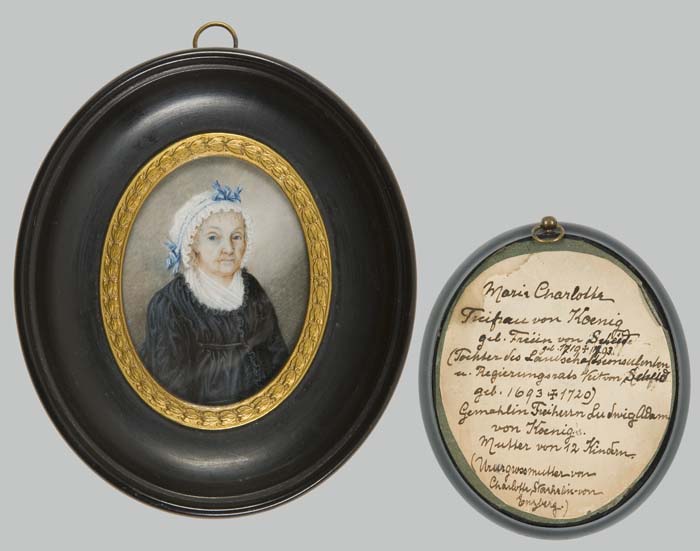 Marie Charlotte
Freifrau von Koenig
geb. Freiin von Scheid
geb. 1719 + 1793
(Tochter des Landschaftsconsulenten
u. Regierungsrats Veit von Scheid
geb. 1693 + 1720)
Gemahlin Freiherrn Ludwig Adam
von Koenig.
Mutter von 12 Kindern.
(Ururgrossmutter von
Charlotte von
Enzberg.)